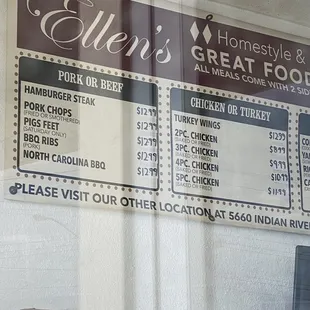 Ellen's
Homestyle &
GREAT FOOD
ALL MEALS COME WITH 2 SID
PORK OR BEEF
HAMBURGER STEAK $12.99
PORK CHOPS $12.99
(FRIED OR SMOTHERED)
PIGS FEET $12.99
(SATURDAY ONLY)
BBQ RIBS $12.99
(PORK)
NORTH CAROLINA BBQ $12.99
CHICKEN OR TURKEY
TURKEY WINGS $12.99
2PC. CHICKEN
(BAKED OR FRIED)
3PC. CHICKEN
(BAKED OR FRIED)
4PC. CHICKEN
(BAKED OR FRIED)
5PC. CHICKEN
(BAKED OR FRIED)
PLEASE VISIT OUR OTHER LOCATION AT 5660 INDIAN RIVER